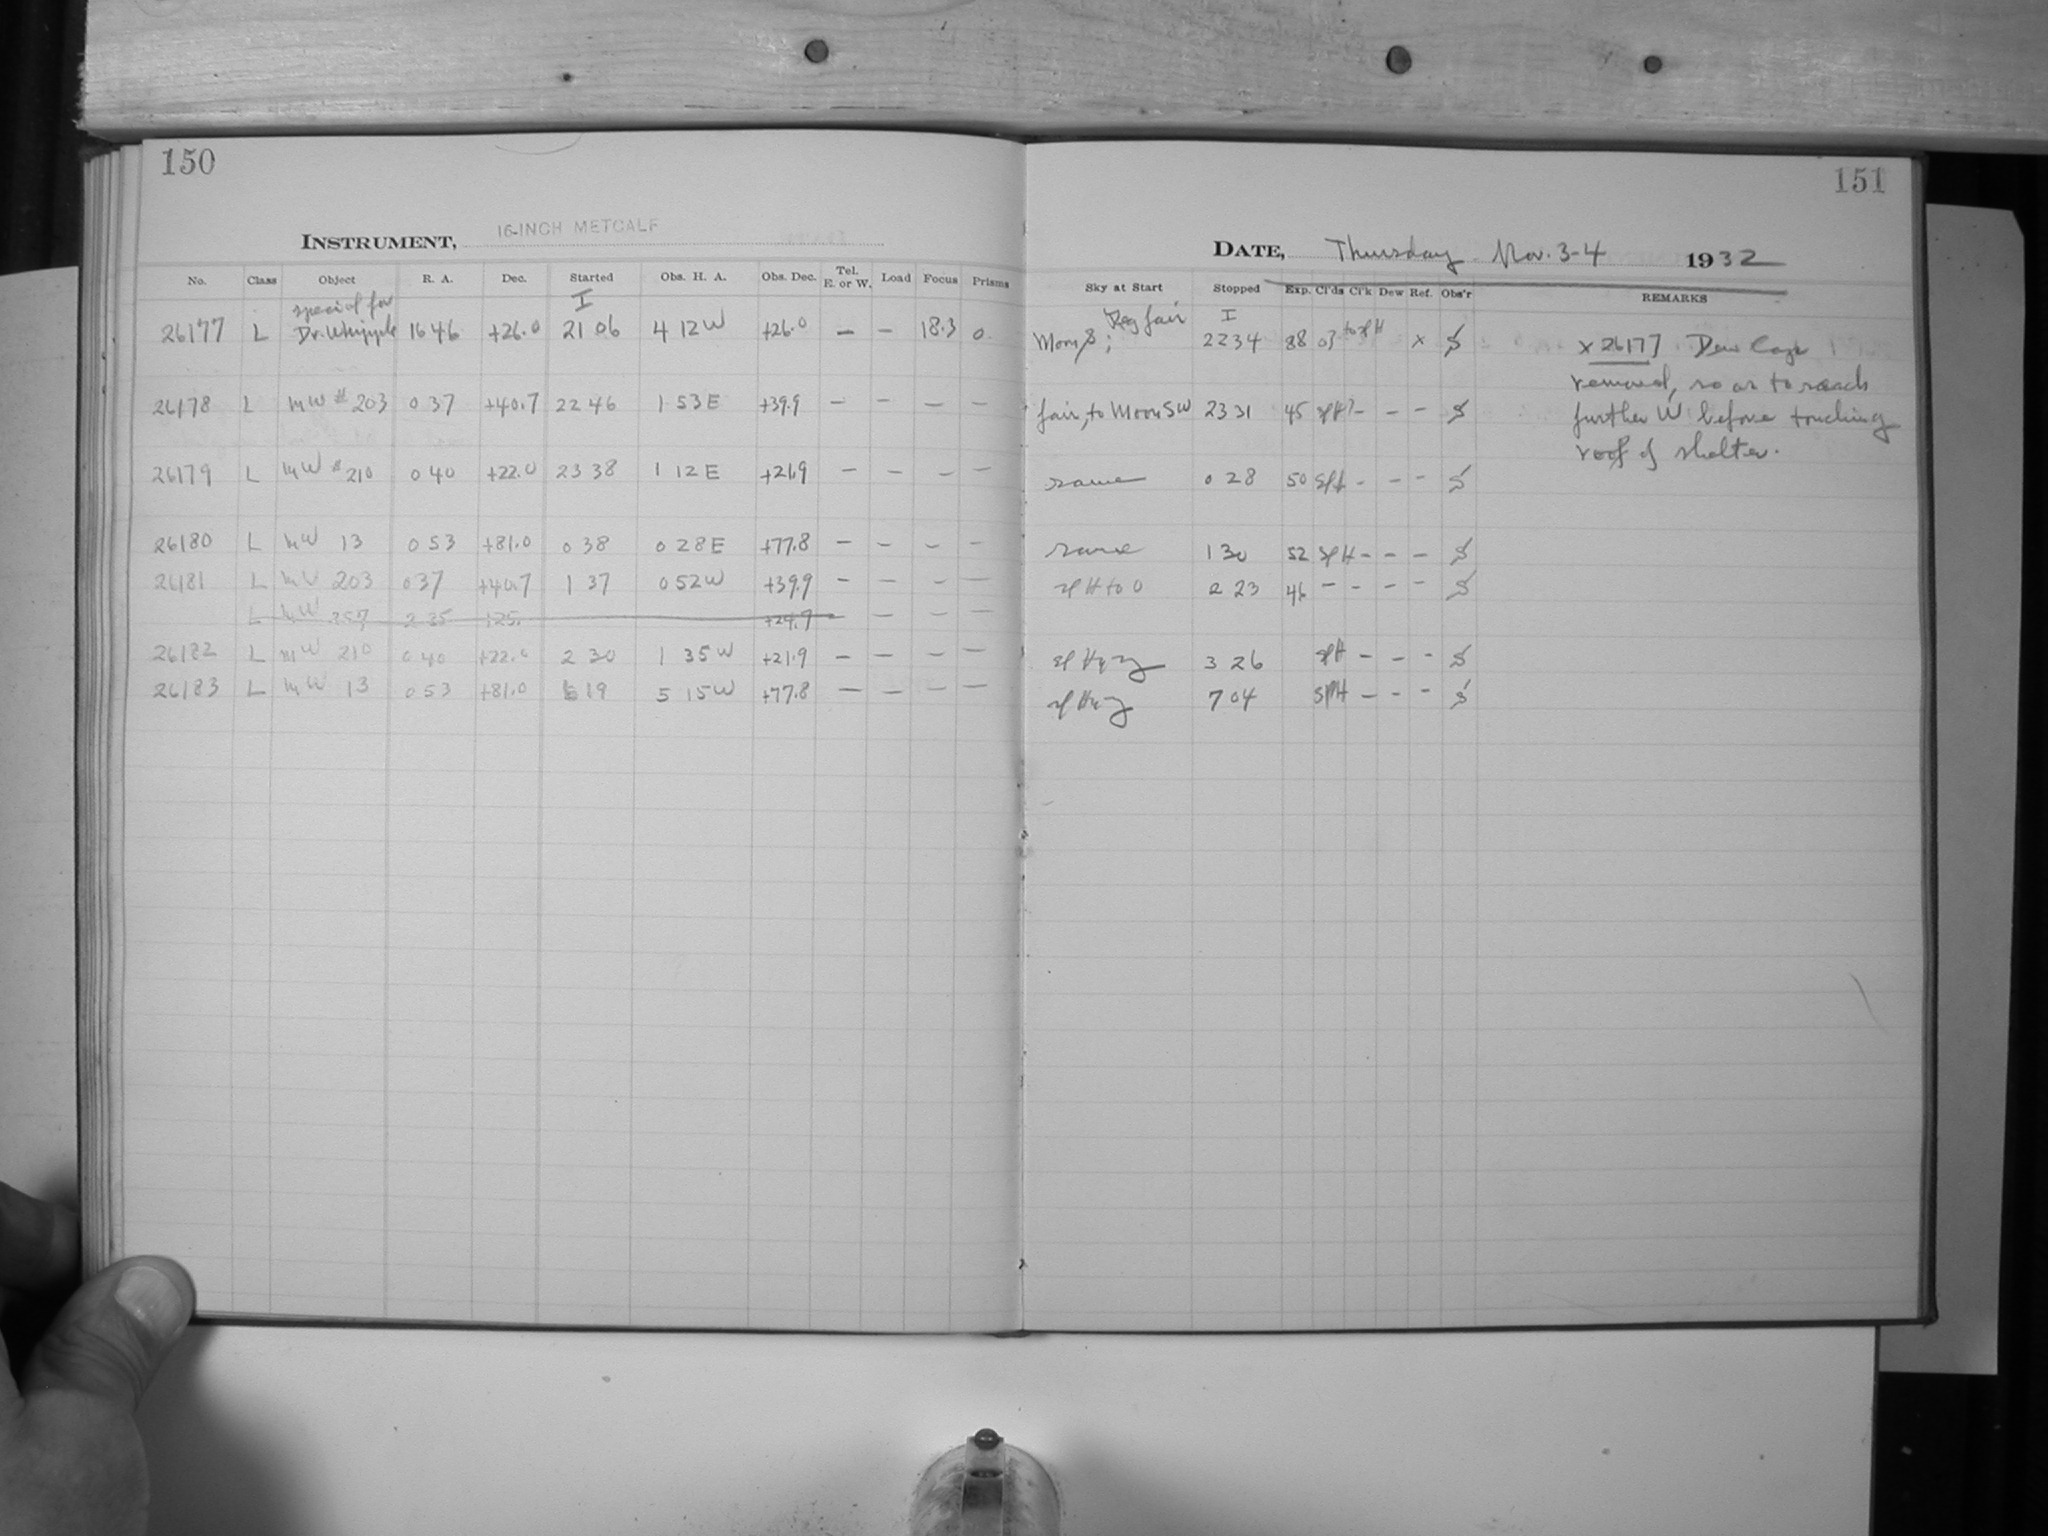 150
151
INSTRUMENT, 16-INCH METCALF
DATE, Thursday Nov. 3-4 1932
No. Class Object R. A. Dec. Started Obs. H. A. Obs. Dec. Tel. E. or W. Load Focus Prisms Sky at Start Stopped Exp. Cl'ds Cl'k Dew Ref. Obs'r REMARKS
special for I fair I
26177 L Dr. Whipple 16 46 +26.0 21 06 4 12 W +26.0 — — 18.3 0 Moon S; 22 34 88 to spH x
26178 L MW # 203 0 37 +40.7 22 46 1 53 E +39.9 — — — — fair, to Moon SW 23 31 45 spH? - - -
26179 L MW # 210 0 40 +22.0 23 38 1 12 E +21.9 — — — — same 0 28 50 SpH - - -
26180 L MW 13 0 53 +81.0 0 38 0 28 E +77.8 — — — — same 1 30 52 SpH - - -
26181 L MW 203 0 37 +40.7 1 37 0 52 W +39.9 — — — — spH to 0 2 23 46 - - - -
L MW 257 2 35 +25. +24.7 — — —
26182 L MW 210 0 40 +22.0 2 30 1 35 W +21.9 — — — — 3 26 spH - - -
26183 L MW 13 0 53 +81.0 19 5 15 W +77.8 — — — — 7 04 SpH - - -
x 26177 Dew Cage
removed, so as to reach
further W before touching
roof of shelter.